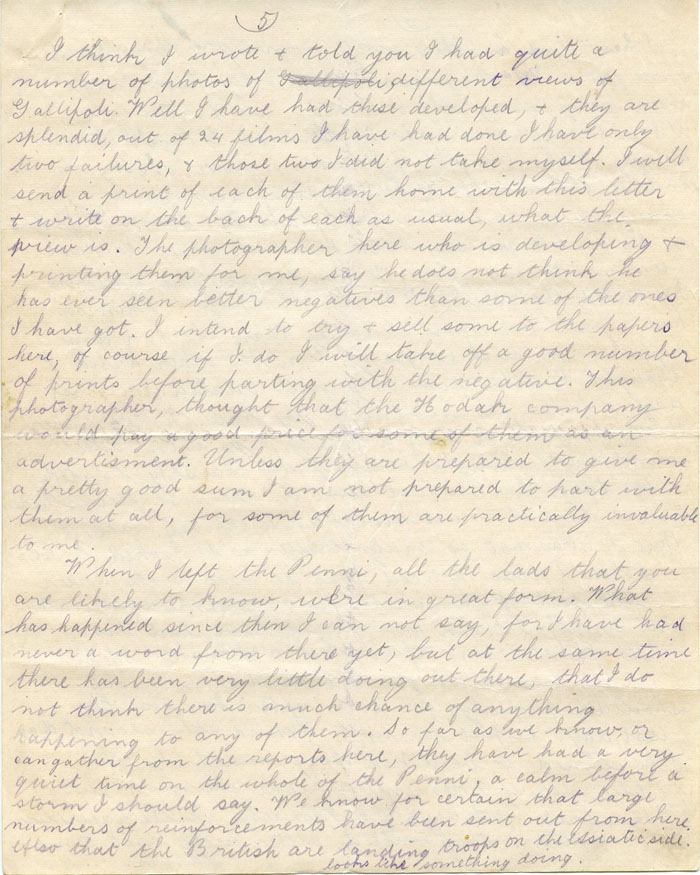 5
I think I wrote + told you I had quite a
number of photos of Gallipoli, different views of
Gallipoli. Well I have had these developed, + they are
splendid, out of 24 films I have had done I have only
two failures, & those two I did not take myself. I will
send a print of each of them home with this letter
+ write on the back of each as usual, what the
view is. The photographer here who is developing +
printing them for me, say he does not think he
has ever seen better negatives than some of the ones
I have got. I intend to try + sell some to the papers
here, of course if I do I will take off a good number
of prints before parting with the negative. This
photographer, thought that the Kodak company
would pay a good price for some of them as an
advertisment. Unless they are prepared to give me
a pretty good sum I am not prepared to part with
them at all, for some of them are practically invaluable
to me.
When I left the Penni, all the lads that you
are likely to know, were in great form. What
has happened since then I can not say, for I have had
never a word from there yet, but at the same time
there has been very little doing out there, that I do
not think there is much chance of anything
happening to any of them. So far as we know, or
can gather from the reports here, they have had a very
quiet time on the whole of the Penni, a calm before a
storm I should say. We know for certain that large
numbers of reinforcements have been sent out from here.
Also that the British are landing troops on the Assiatic side.
looks like something doing.